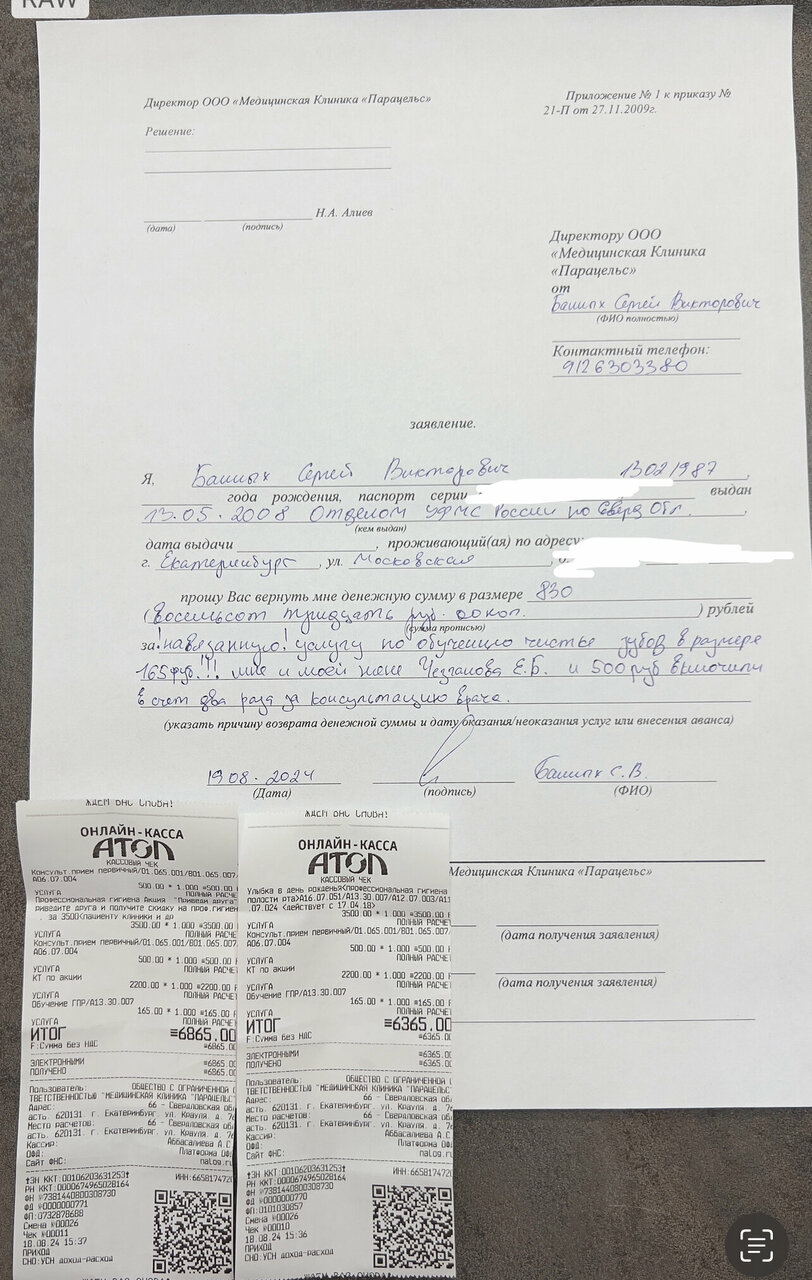 RAW
Директор ООО «Медицинская Клиника «Парацельс»
Приложение № 1 к приказу №
21-П от 27.11.2009г.
Решение:
Н.А. Алиев
(дата) (подпись)
Директору ООО
«Медицинская Клиника
«Парацельс»
от
Башых Сергей Викторович
(ФИО полностью)
Контактный телефон:
9126303380
заявление.
Я, Башых Сергей Викторович 13021987,
года рождения, паспорт серии выдан
13.05.2008 Отделом УФМС России по Сверд Обл.,
(кем выдан)
дата выдачи , проживающий(ая) по адресу:
г. Екатеринбург, ул. Московская,
прошу Вас вернуть мне денежную сумму в размере 830
(Восемьсот тридцать руб. 00 коп.) рублей
(сумма прописью)
за !навязанную! услугу по обучению чистке зубов в размере
165 руб.!!! мне и моей жене Е.Б. и 500 руб включили
в счет два раза за консультацию врача.
(указать причину возврата денежной суммы и дату оказания/неоказания услуг или внесения аванса)
19.08.2024 Башых С.В.
(Дата) (подпись) (ФИО)
Медицинская Клиника «Парацельс»
(дата получения заявления)
(дата получения заявления)
ЖДЕМ ВАС СНОВА!
ОНЛАЙН-КАССА
АТОЛ
КАССОВЫЙ ЧЕК
Консульт.прием первичный/01.065.001/В01.065.007
А06.07.004
500.00 * 1.000 =500.00
УСЛУГА ПОЛНЫЙ РАСЧЕ
Профессиональная гигиена Акция "Приведи друга"
риведите друга и получите скидку на проф.гигиен
. за 3500<пациенту клиники и др
3500.00 * 1.000 =3500.00
УСЛУГА ПОЛНЫЙ РАСЧЕ
Консульт.прием первичный/01.065.001/В01.065.007
А06.07.004
500.00 * 1.000 =500.00
УСЛУГА ПОЛНЫЙ РАСЧЕТ
КТ по акции
2200.00 * 1.000 =2200.00
УСЛУГА ПОЛНЫЙ РАСЧЕ
Обучение ГПР/А13.30.007
165.00 * 1.000 =165.00
УСЛУГА ПОЛНЫЙ РАСЧЕ
ИТОГ =6865.00
F:Сумма без НДС =6865.00
ЭЛЕКТРОННЫМИ =6865.00
ПОЛУЧЕНО =6865.00
Пользователь: ОБЩЕСТВО С ОГРАНИЧЕННОЙ
ТВЕТСТВЕННОСТЬЮ "МЕДИЦИНСКАЯ КЛИНИКА "ПАРАЦЕЛЬС
Адрес: 66 - Свердловская об
асть. 620131. г. Екатеринбург. ул. Крауля. д. 7
Место расчетов: 66 - Свердловская об
асть. 620131. г. Екатеринбург. ул. Крауля. д. 7
Кассир: Аббасалиева А.С
ОФД: Платформа ОФ
Сайт ФНС: nalog.ru
ЗН ККТ:00106203631253
ИНН:665817472
РН ККТ:0000674965028164
ФН №7381440800308730
ФД №0000000771
ФП:0732878688
Смена №00026
Чек №00011
18.08.24 15:37
ПРИХОД
СНО:УСН доход-расход
ЖДЕМ ВАС СНОВА!
ОНЛАЙН-КАССА
АТОЛ
КАССОВЫЙ ЧЕК
Улыбка в день рожденья<Профессиональная гигиена
полости рта>А16.07.051/А13.30.007/А12.07.003/А11
.07.024 <действует с 17.04.18>
3500.00 * 1.000 =3500.00
УСЛУГА ПОЛНЫЙ РАСЧЕТ
Консульт.прием первичный/01.065.001/В01.065.007/
А06.07.004
500.00 * 1.000 =500.00
УСЛУГА ПОЛНЫЙ РАСЧЕТ
КТ по акции
2200.00 * 1.000 =2200.00
УСЛУГА ПОЛНЫЙ РАСЧЕТ
Обучение ГПР/А13.30.007
165.00 * 1.000 =165.00
УСЛУГА ПОЛНЫЙ РАСЧЕТ
ИТОГ =6365.00
F:Сумма без НДС =6365.
ЭЛЕКТРОННЫМИ =6365.00
ПОЛУЧЕНО =6365.00
Пользователь: ОБЩЕСТВО С ОГРАНИЧЕННОЙ
ТВЕТСТВЕННОСТЬЮ "МЕДИЦИНСКАЯ КЛИНИКА "ПАРАЦЕЛЬС"
Адрес: 66 - Свердловская об
асть. 620131. г. Екатеринбург. ул. Крауля. д. 7
Место расчетов: 66 - Свердловская об
асть. 620131. г. Екатеринбург. ул. Крауля. д. 7
Кассир: Аббасалиева А.С
ОФД: Платформа ОФ
Сайт ФНС: nalog.ru
ЗН ККТ:00106203631253
ИНН:6658174720
РН ККТ:0000674965028164
ФН №7381440800308730
ФД №0000000770
ФП:0101030857
Смена №00026
Чек №00010
18.08.24 15:36
ПРИХОД
СНО:УСН доход-расход